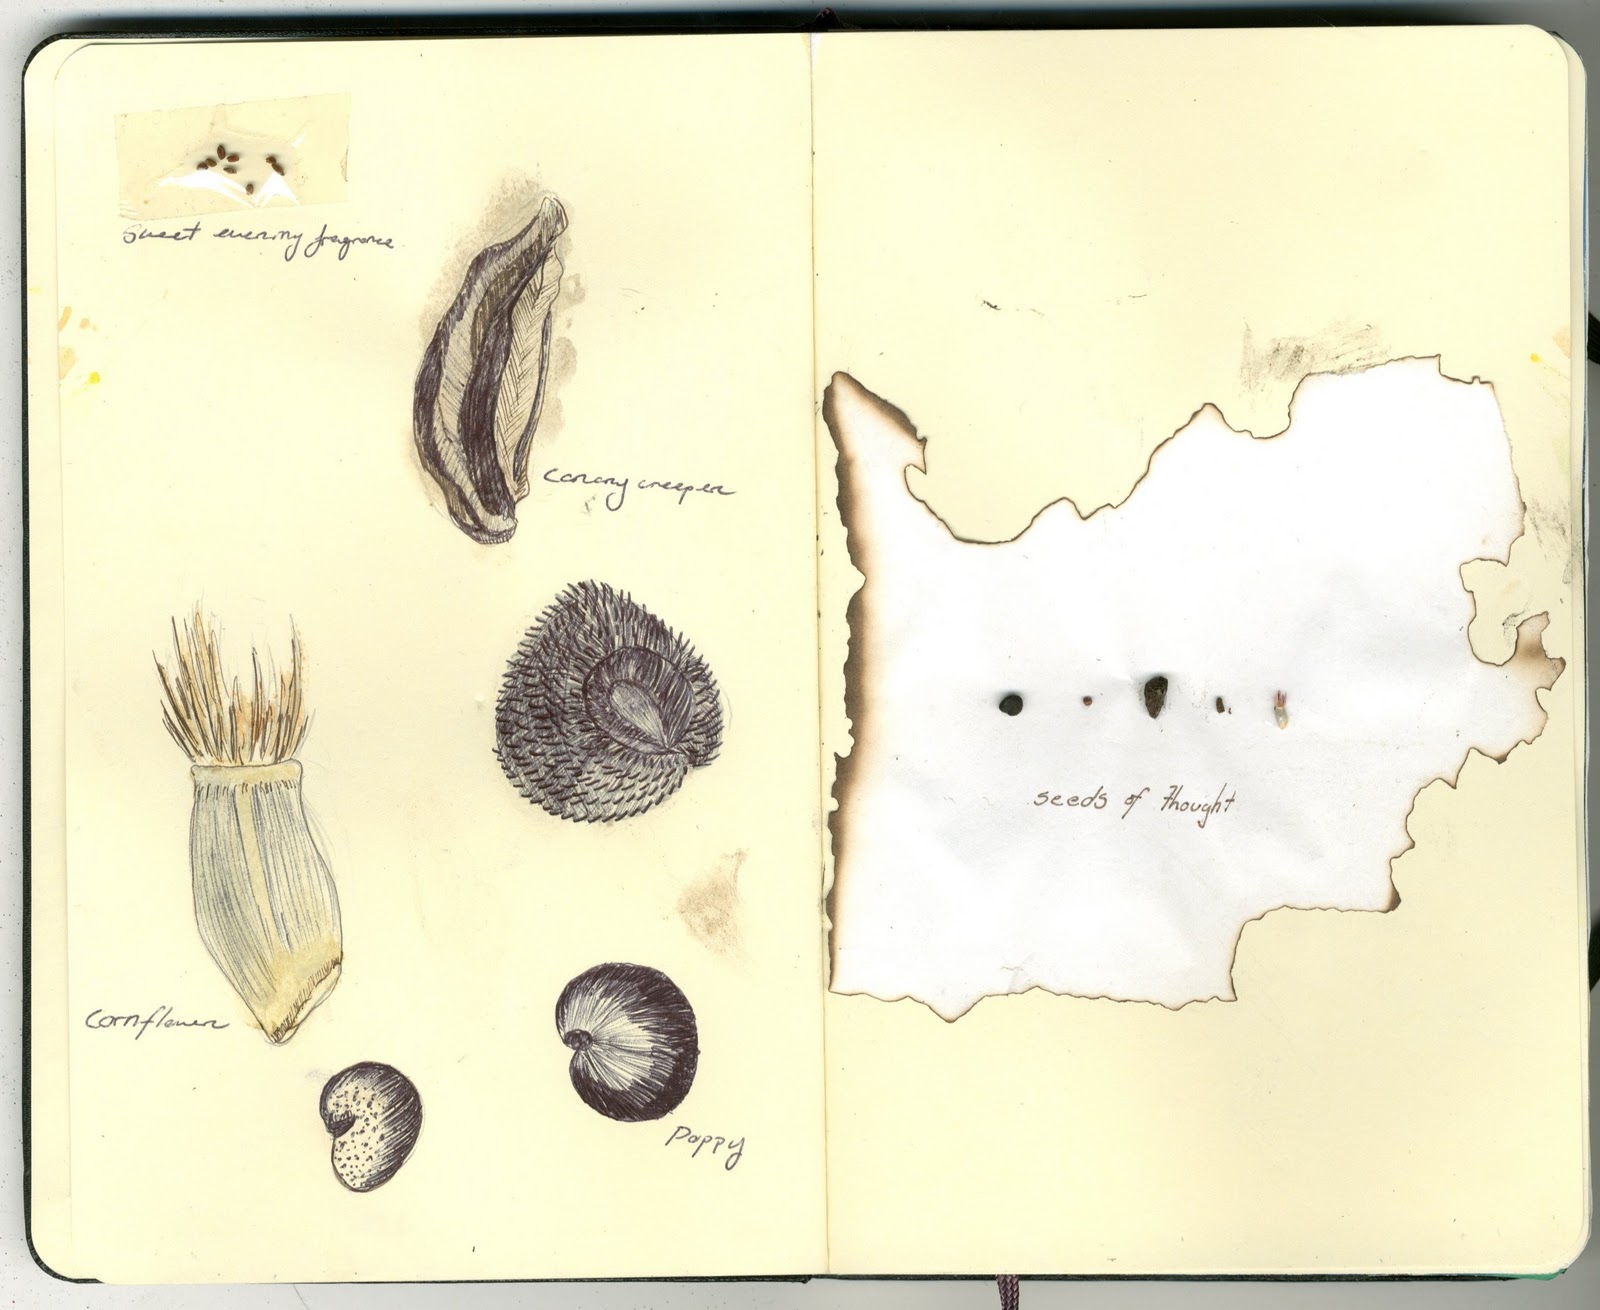 Sweet evening fragrance
Canary creeper
Cornflower
Poppy
seeds of thought